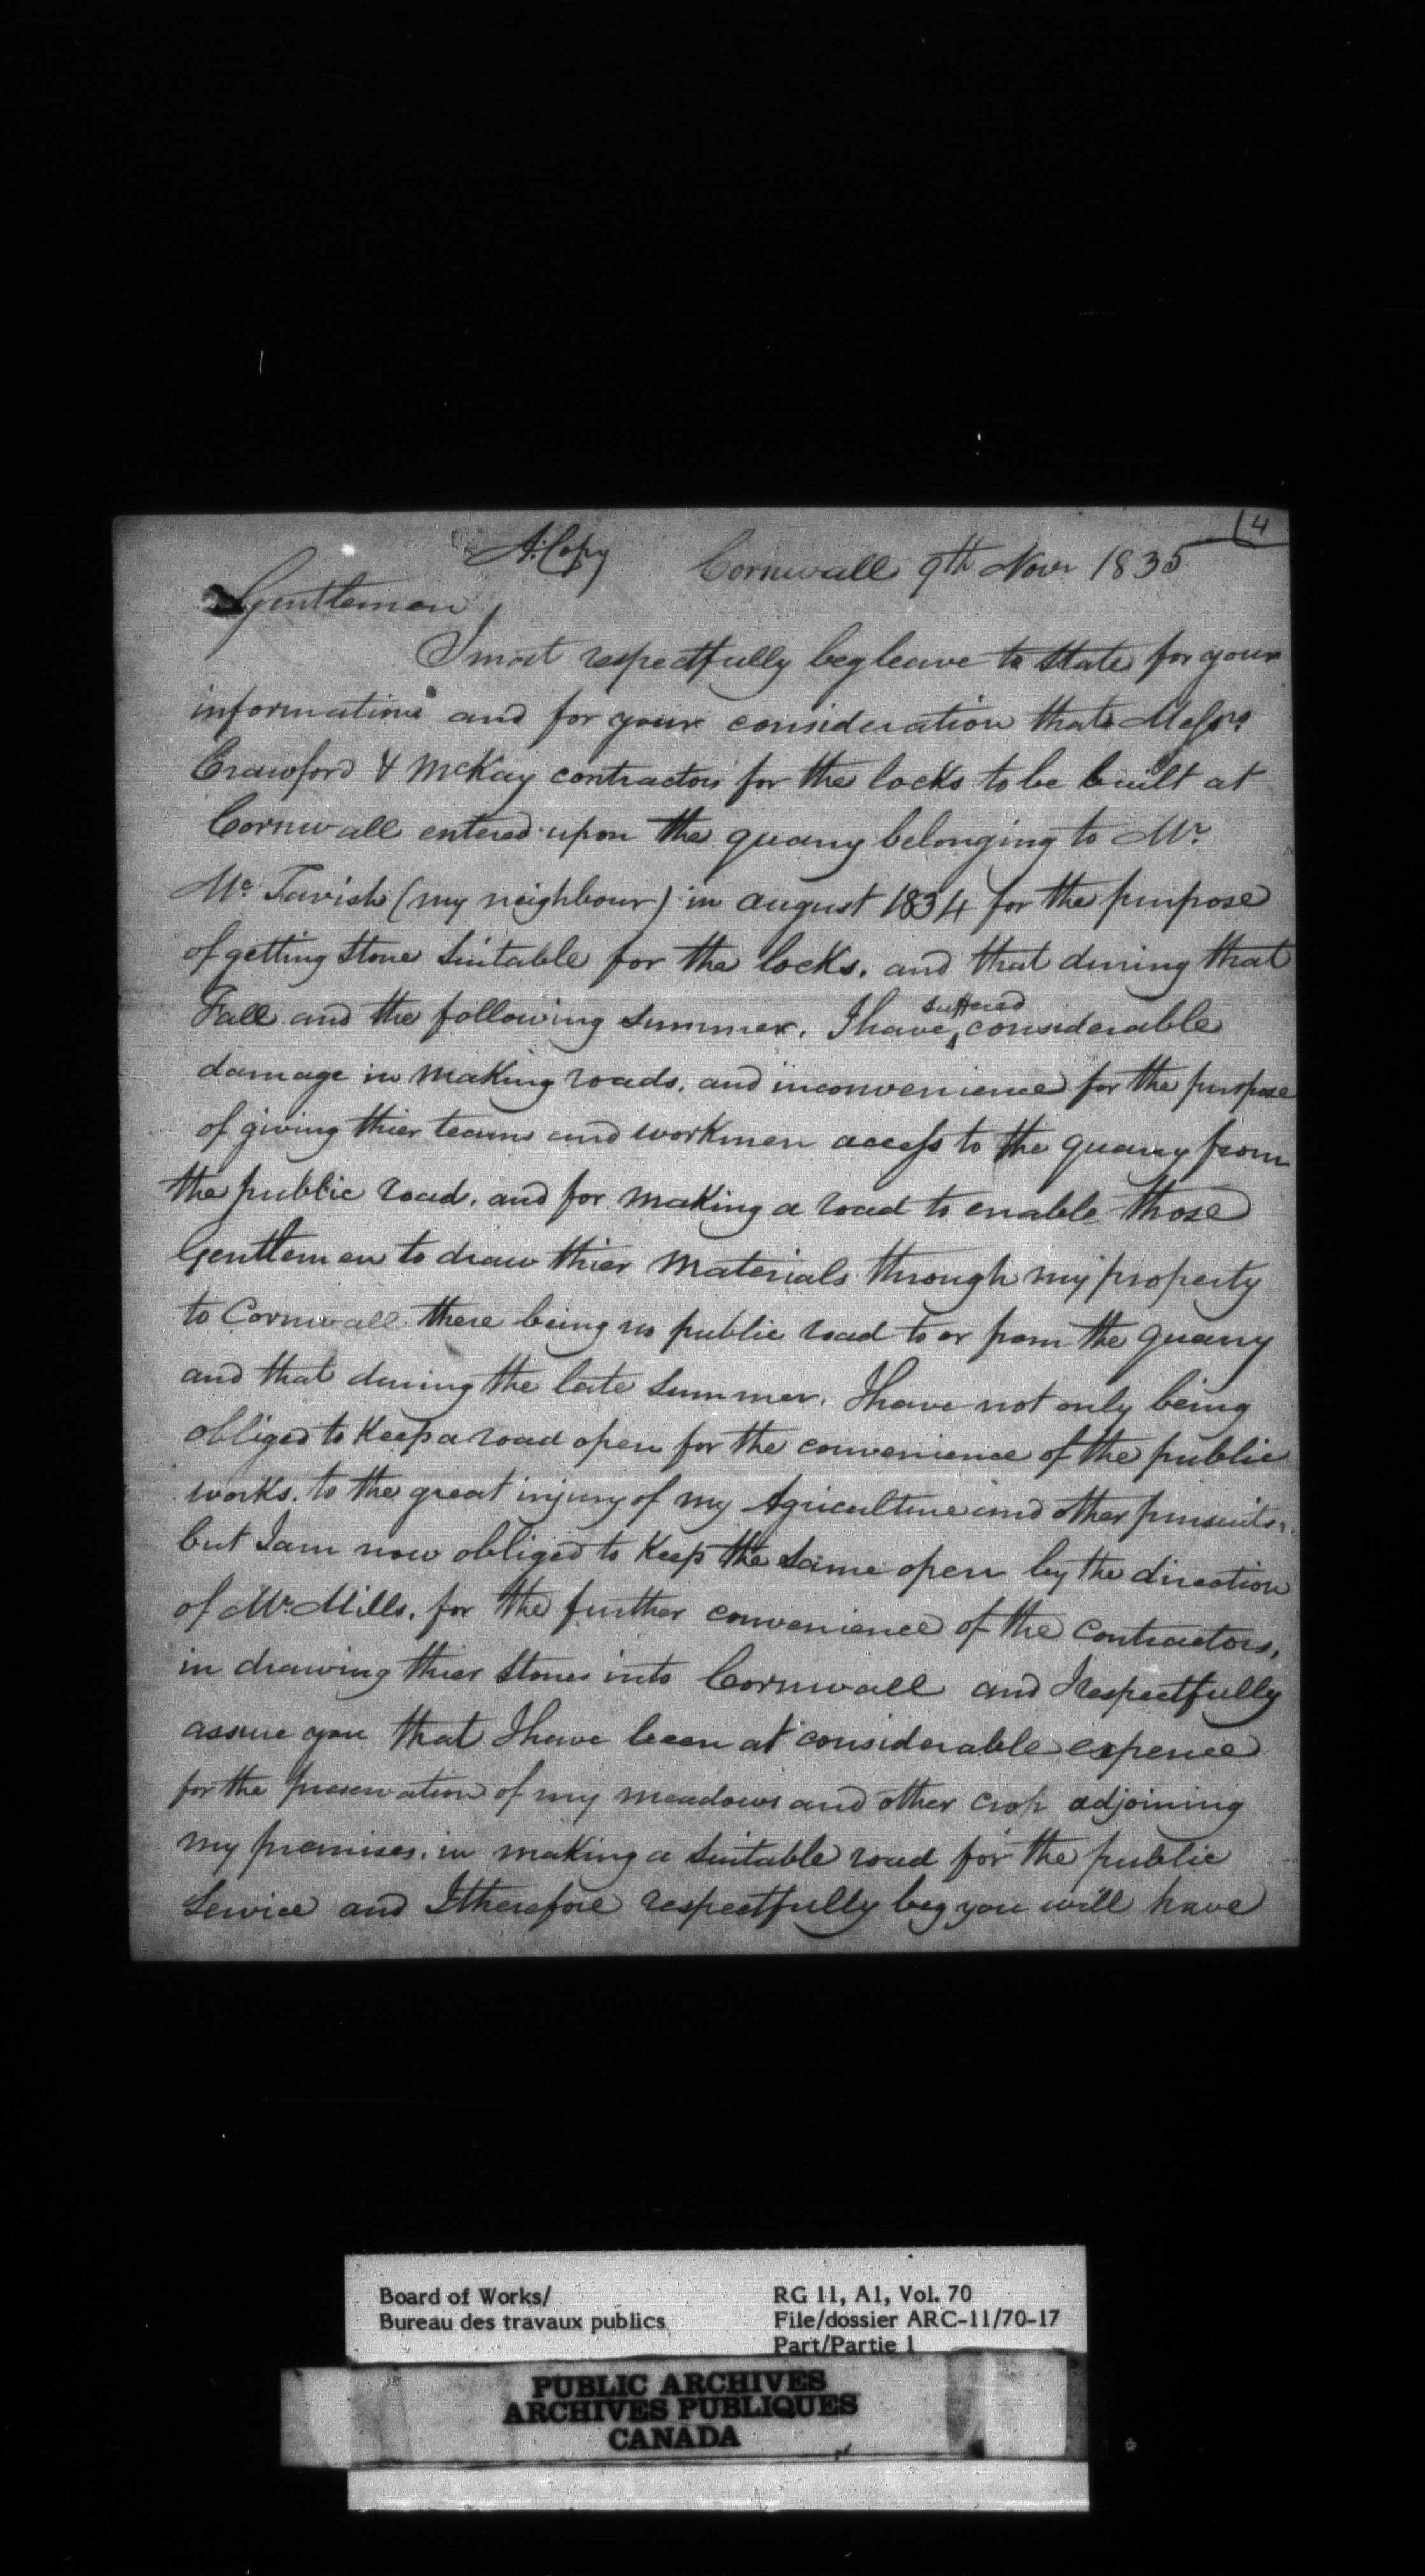 4
A. Copy Cornwall 9th Novr 1835
Gentlemen
I most respectfully beg leave to state for your
information and for your consideration that Messrs
Crawford & McKay contractors for the locks to be built at
Cornwall entered upon the quarry belonging to Mr.
Mc Tavish (my neighbour) in august 1834 for the purpose
of getting stone suitable for the locks. and that during that
Fall and the following summer. I have suffered considerable
damage in making roads. and inconvenience for the purpose
of giving thier teams and workmen access to the quarry from
the public road. and for making a road to enable those
Gentlemen to draw thier materials through my property
to Cornwall there being no public road to or from the quarry
and that during the late summer. I have not only being
obliged to keep a road open for the convenience of the public
works. to the great injury of my Agriculture and other pursuits.
but I am now obliged to keep the same open by the direction
of Mr. Mills. for the further convenience of the contractors,
in drawing thier stones into Cornwall and I respectfully
assure you that I have been at considerable expence
for the preservation of my meadows and other crop adjoining
my premises. in making a suitable road for the public
Service and I therefore respectfully beg you will have
Board of Works/
Bureau des travaux publics
RG 11, A1, Vol. 70
File/dossier ARC-11/70-17
Part/Partie 1
PUBLIC ARCHIVES
ARCHIVES PUBLIQUES
CANADA